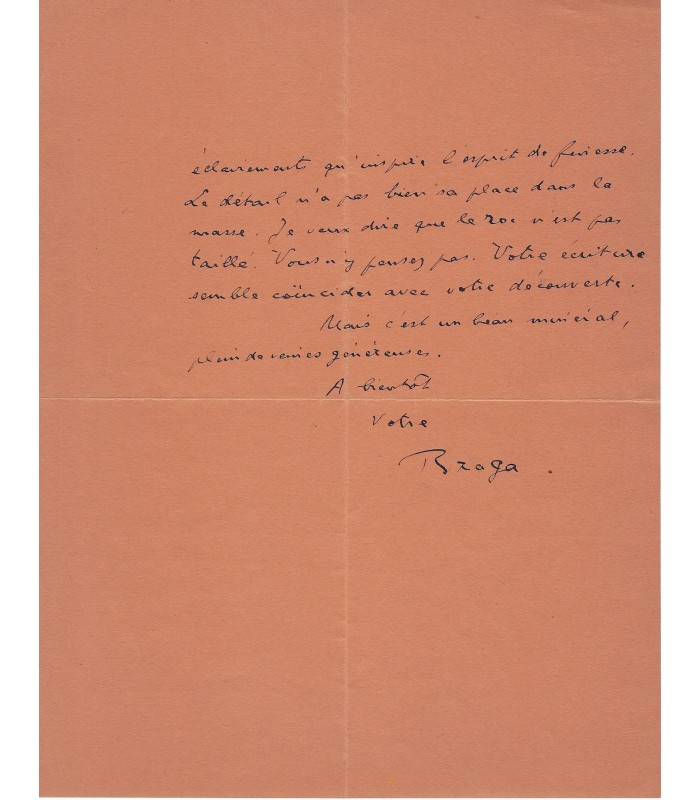 éclairements qu'inspire l'esprit de finesse.
Le détail n'a pas bien sa place dans la
masse. Je veux dire que le roc n'est pas
taillé. Vous n'y pensez pas. Votre écriture
semble coïncider avec votre découverte.
Mais c'est un beau minéral,
plein de veines généreuses.
A bientôt
Votre
Braga.